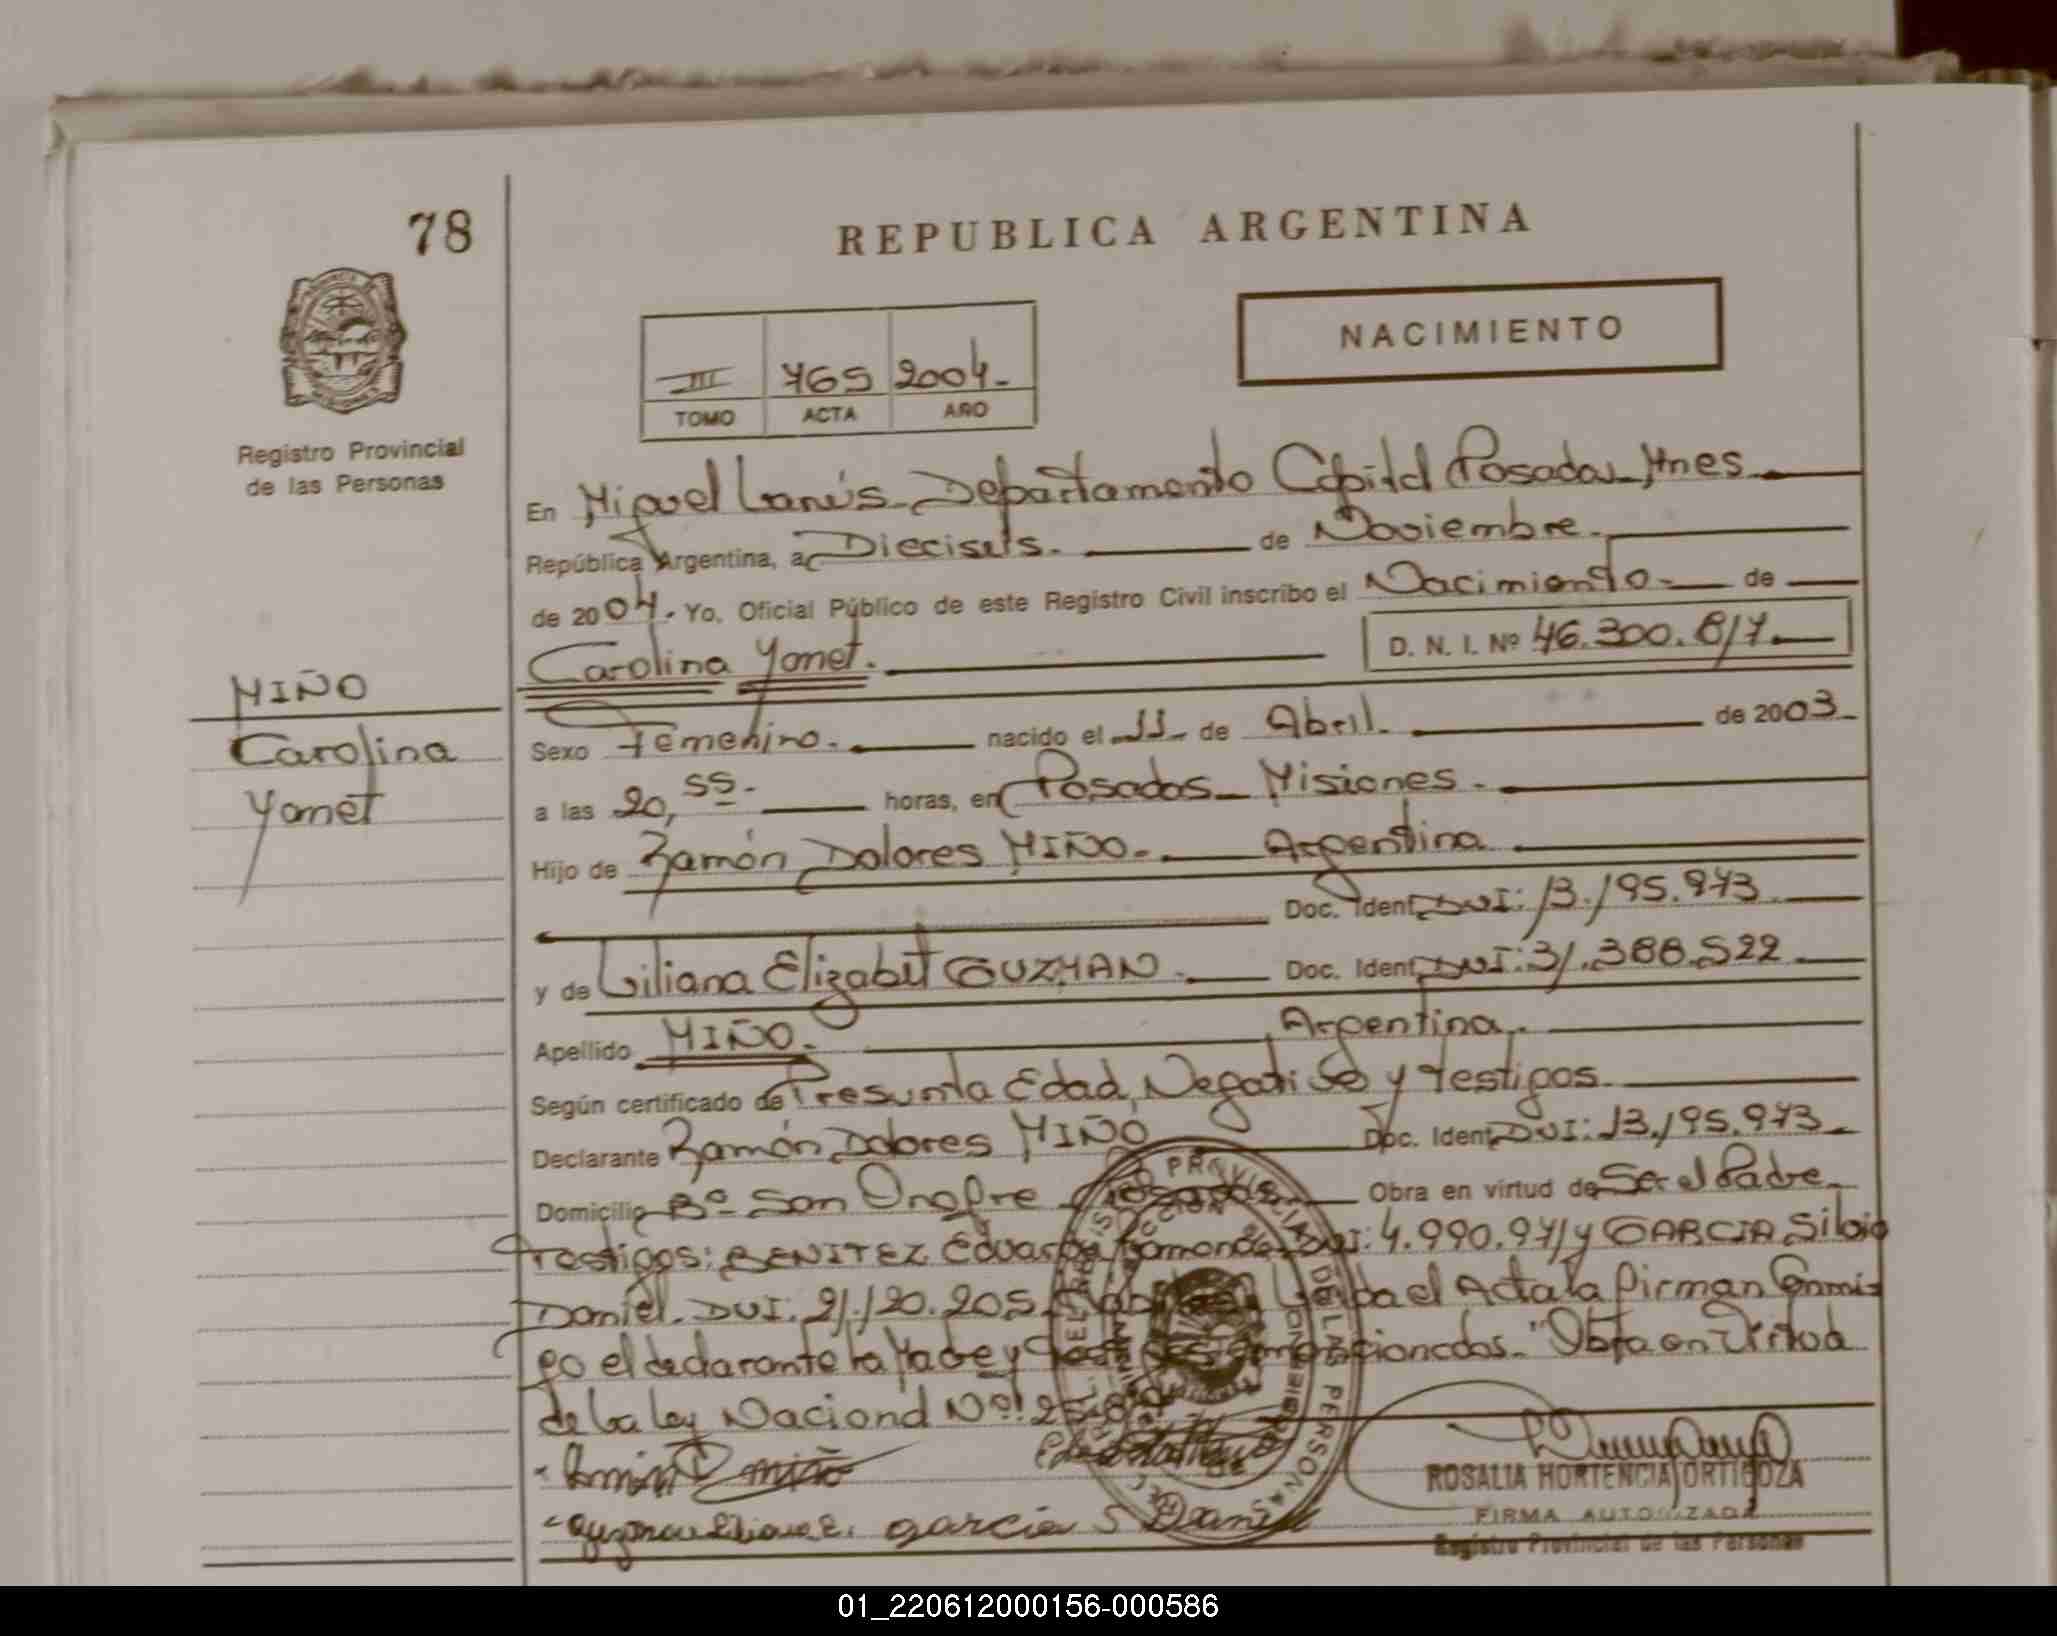 78
REPUBLICA ARGENTINA
NACIMIENTO
III 765 2004.
TOMO ACTA AÑO
Registro Provincial
de las Personas
En Miguel Lanús - Departamento Capital Posadas Mnes
República Argentina, a Dieciseis. de Noviembre.
de 2004. Yo, Oficial Público de este Registro Civil inscribo el Nacimiento. de
Carolina Yanet. D. N. I. Nº 46.300.817
MIÑO
Carolina
Yanet
Sexo Femenino. nacido el 11 de Abril. de 2003
a las 20,55. horas, en Posadas Misiones.
Hijo de Ramón Dolores MIÑO. Argentina
Doc. Ident. DNI: 13.195.973
y de Liliana Elizabet GUZMAN. Doc. Ident. DNI: 31.388.522
Apellido MIÑO. Argentina.
Según certificado de Presunta Edad, Negativo y testigos.
Declarante Ramón Dolores MIÑO Doc. Ident. DNI: 13.195.973
Domicilio Bº San Onofre Posadas Obra en virtud de Ser el Padre
Testigos: BENITEZ Eduardo DNI: 4.990.971 y GARCIA Silvio
Daniel. DNI: 21.120.205 el Acta la firman Conmi
go el declarante la Madre y testigos mencionados. "Obra en Virtud
de la ley Nacional Nº: 
Ramón D miño
Guzman Liliana E. garcia S Daniel
ROSALIA HORTENCIA ORTIGOZA
FIRMA AUTORIZADA
Registro Provincial de las Personas
01_220612000156-000586